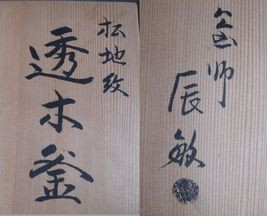 松地紋
透木釜
釜師
辰敏